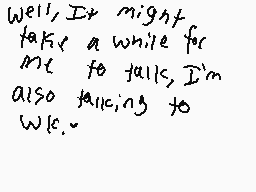 Well, It might
take a while for
me to talk, I'm
also talking to
Wk.